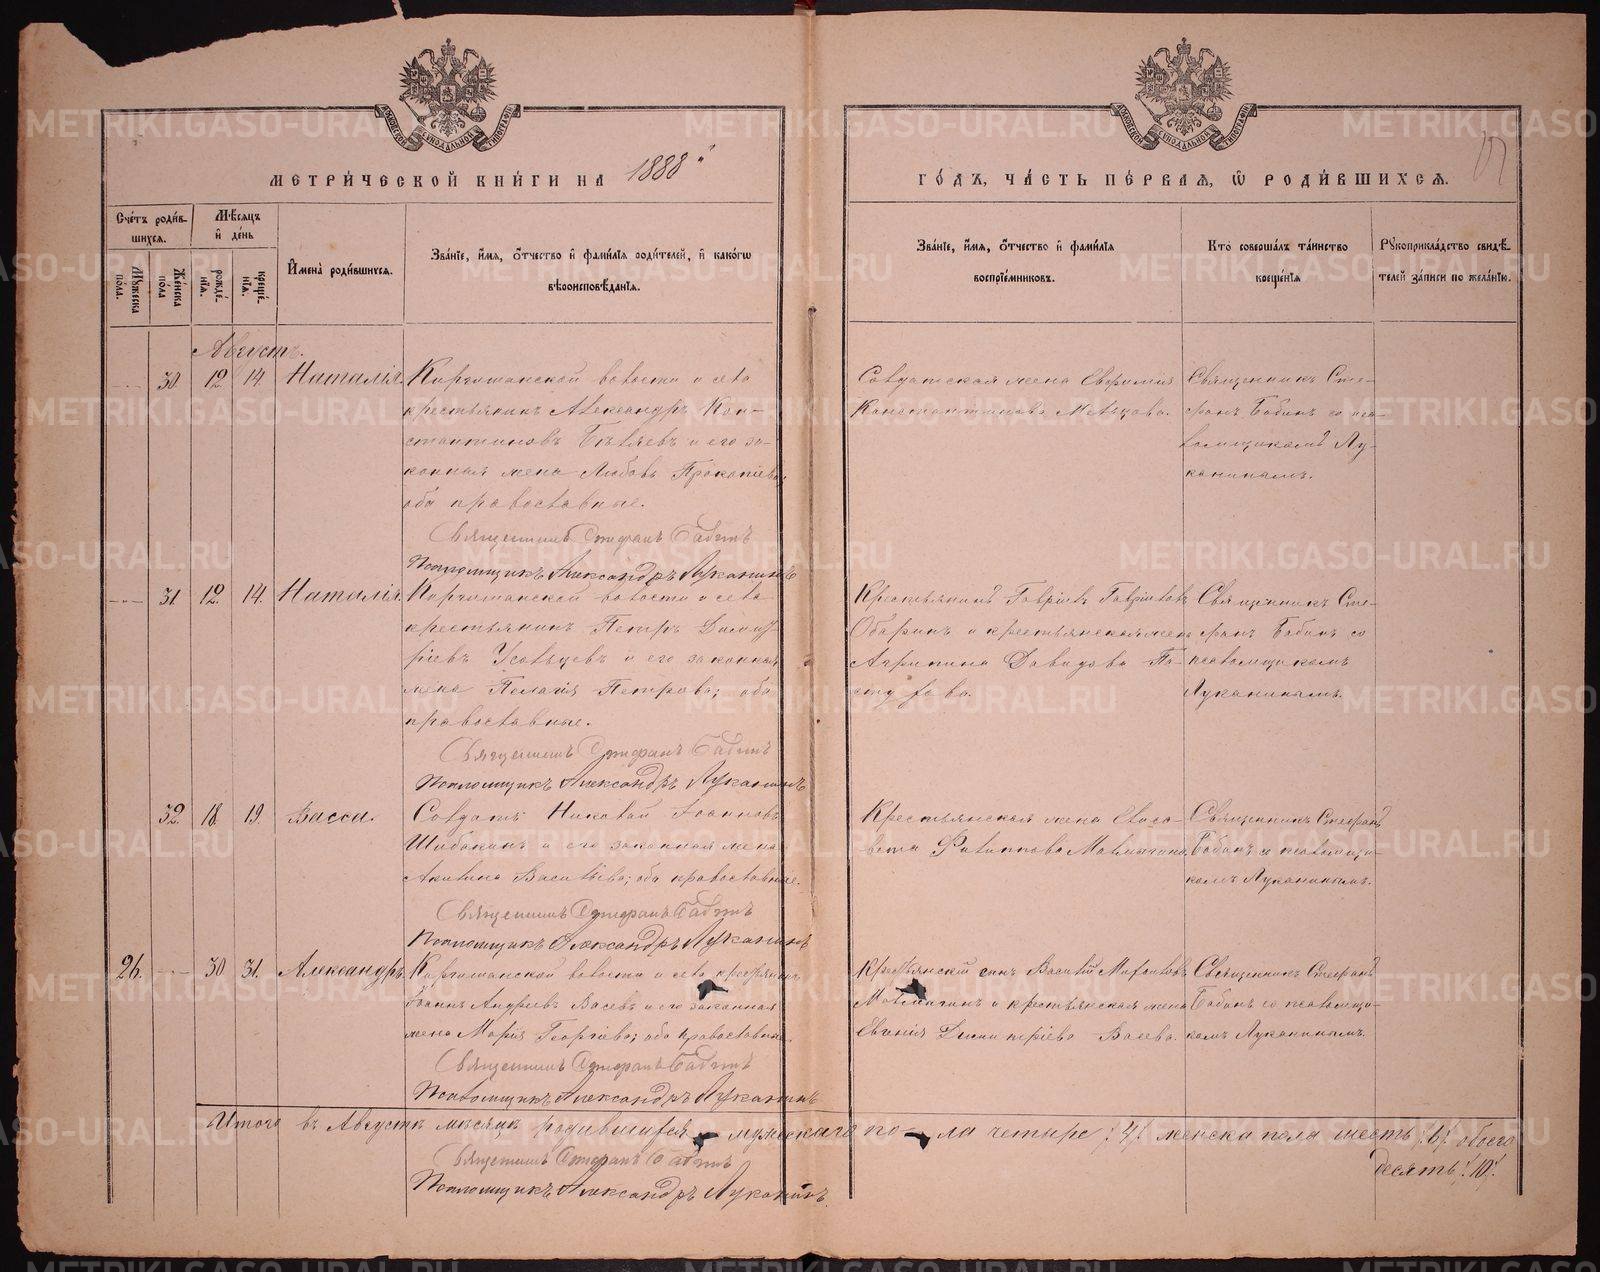 МЕТРИ́ЧЕСКОЙ КНИ́ГИ НА 1888
ГО́ДЪ, ЧА́СТЬ ПЕ́РВАЯ, Ѽ РОДИ́ВШИХСЯ.
Сче́тъ роди́в-
шихся.
Му́жеска по́ла.
Же́нска по́ла
Мѣ́сяцъ и҆ де́нь
рожде́-
нїя.
креще́-
нїя.
И҆мена̀ роди́вшихся.
Зва́нїе, и҆́мя, ѻ҆́тчество и҆ фамилїя роди́телей, и҆ како́гѡ
вѣроисповѣ́данїя.
Зва́нїе, и҆́мя, ѻ҆́тчество и҆ фами́лїя
воспрїе́мниковъ.
Кто̀ соверша́лъ та́инство
креще́нїя
Рꙋкоприкла́дство свидѣ́-
телей за́писи по жела́нїю.
Августъ.
30. 12. 14. Наталія.
Каргопольской волости и села
крестьянинъ Александръ Кон-
стантиновъ Бѣляевъ и его за-
конная жена Любовь Прокопіева;
оба православные.
Священникъ Стефанъ Бабинъ
Псаломщикъ Александръ Луканинъ
Солдатская жена Евфимія
Константинова
Священникъ Сте-
фанъ Бабинъ со пса-
ломщикомъ Лу-
канинымъ.
31. 12. 14. Наталія.
волости и села
крестьянинъ Петръ Димит-
ріевъ Усольцевъ и его законная
жена Пелагія Петрова; оба
православные.
Священникъ Стефанъ Бабинъ
Псаломщикъ Александръ Луканинъ
Крестьянинъ Гавріилъ Гавріиловъ
и крестьянская жена
Агрипина Давидова Па-
стухова.
Священникъ Сте-
фанъ Бабинъ со
псаломщикомъ
Луканинымъ.
32. 18. 19. Васса.
Солдатъ Николай Іоанновъ
Шибакинъ и его законная жена
Акилина Васильева; оба православные.
Священникъ Стефанъ Бабинъ
Псаломщикъ Александръ Луканинъ
Крестьянская жена Елиса-
вета Филиппова
Священникъ Стефанъ
Бабинъ со псаломщи-
комъ Луканинымъ.
26. 30. 31. Александръ.
волости и села крестьянинъ
Іоаннъ Андреевъ Васевъ и его законная
жена Марія Георгіева; оба православные.
Священникъ Стефанъ Бабинъ
Псаломщикъ Александръ Луканинъ
Крестьянскій сынъ Василій
и крестьянская жена
Евгенія Димитріева Васева.
Священникъ Стефанъ
Бабинъ со псаломщи-
комъ Луканинымъ.
Итого въ Августѣ мѣсяцѣ родившихся мужескаго по-ла четыре /4/ женска пола шесть /6/ обоего
десять /10/.
Священникъ Стефанъ Бабинъ
Псаломщикъ Александръ Луканинъ
METRIKI.GASO-URAL.RU